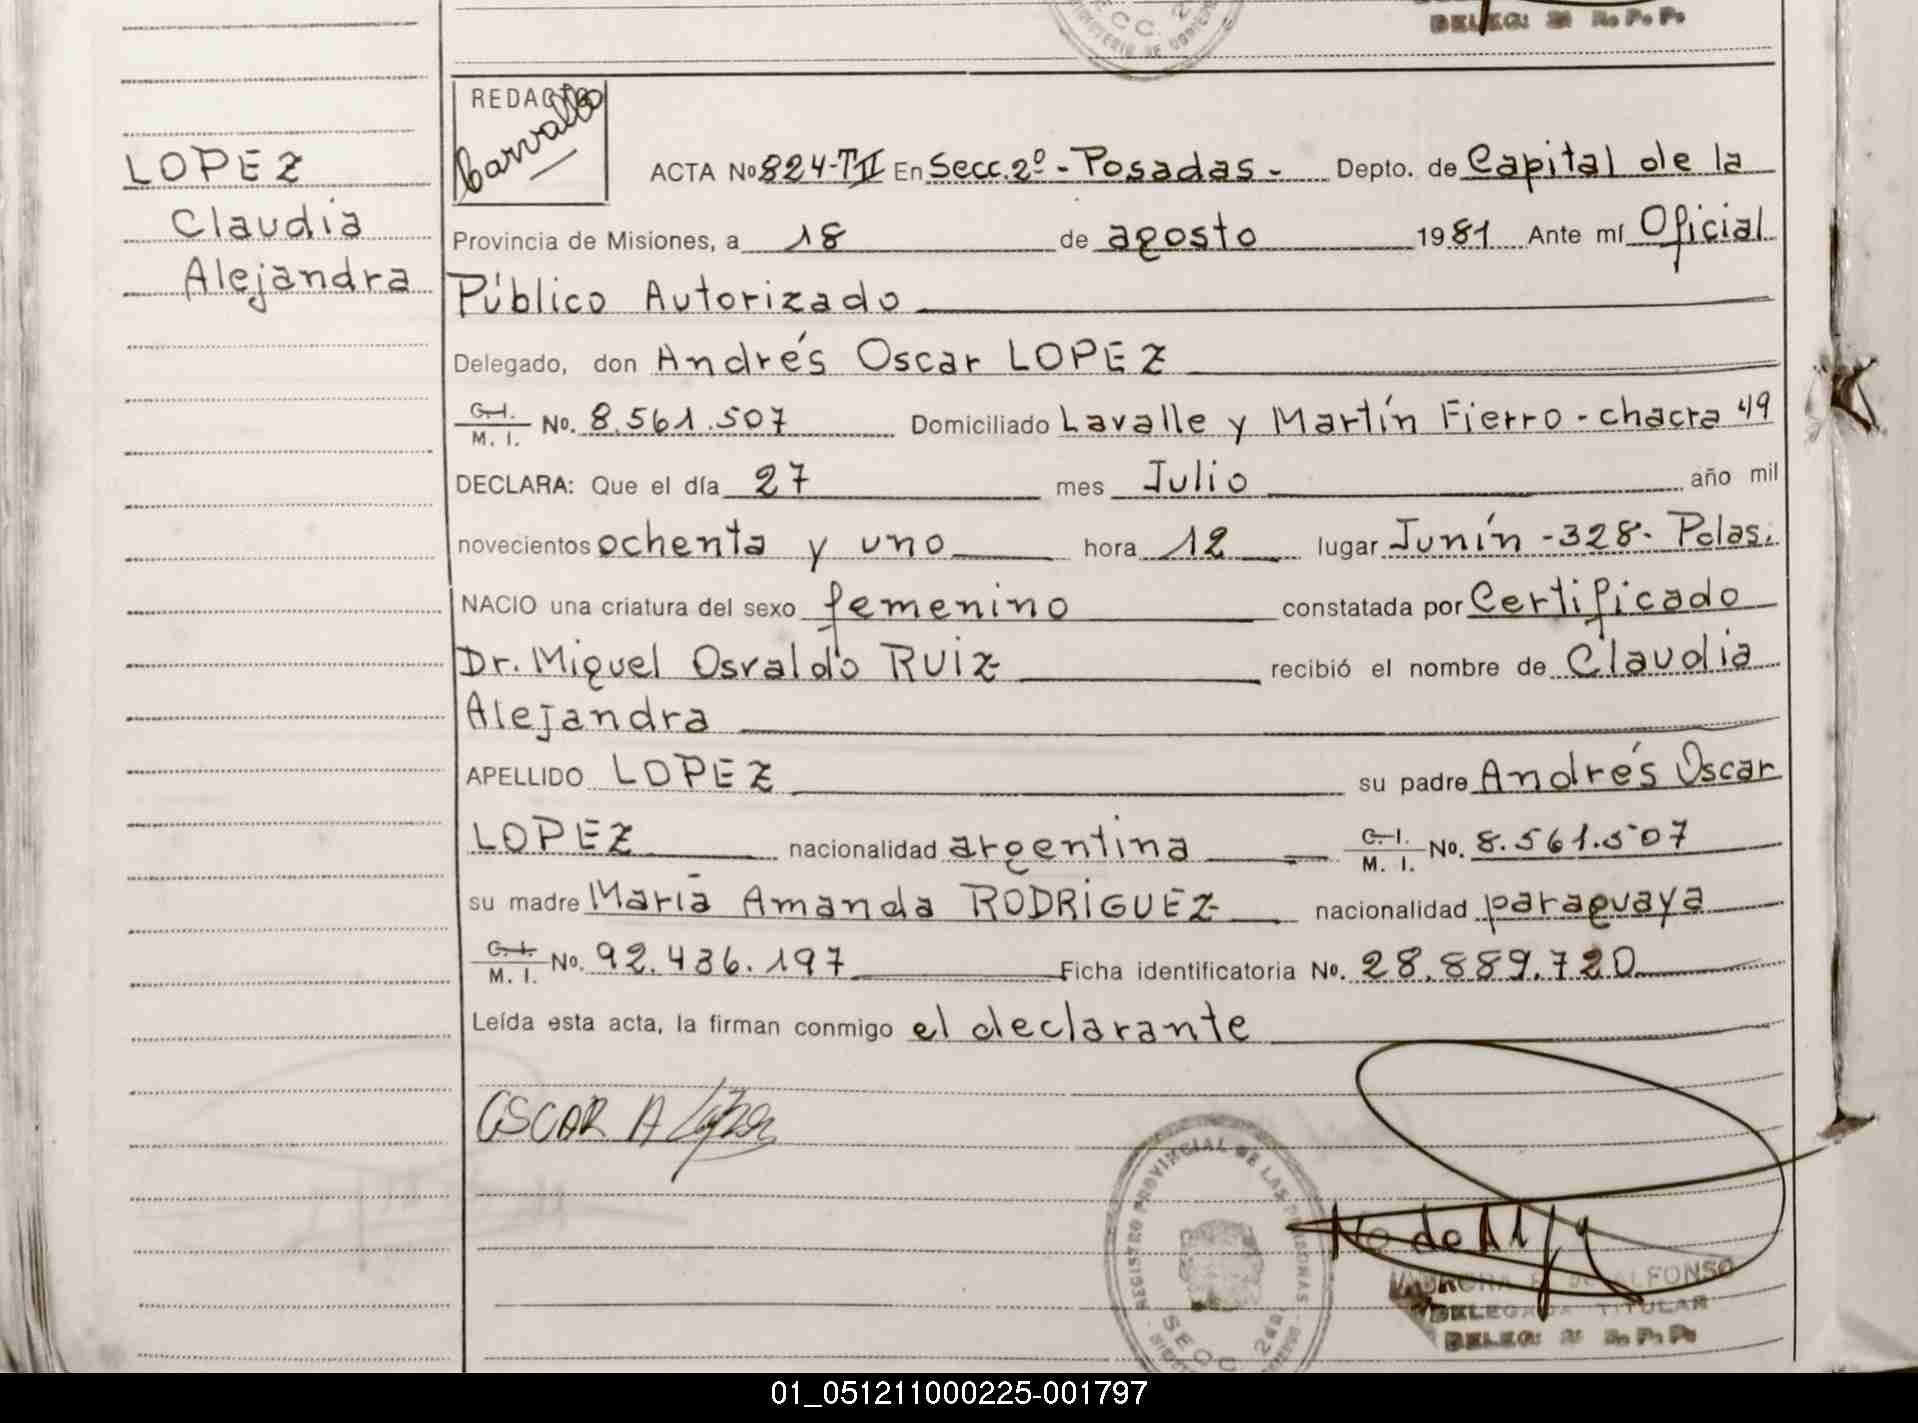 DELEG: 2ª R. P. P.
REDACTO
Carvallo
LOPEZ
Claudia
Alejandra
ACTA No 824-TII En Secc. 2º - Posadas - Depto. de Capital de la
Provincia de Misiones, a 18 de agosto 1981 Ante mí Oficial
Público Autorizado
Delegado, don Andrés Oscar LOPEZ
C. I.
M. I. No. 8.561.507 Domiciliado Lavalle y Martín Fierro - chacra 49
DECLARA: Que el día 27 mes Julio año mil
novecientos ochenta y uno hora 12 lugar Junín - 328 - Pdas.
NACIO una criatura del sexo femenino constatada por Certificado
Dr. Miguel Osvaldo RUIZ recibió el nombre de Claudia
Alejandra
APELLIDO LOPEZ su padre Andrés Oscar
LOPEZ nacionalidad argentina C. I.
M. I. No. 8.561.507
su madre María Amanda RODRIGUEZ nacionalidad paraguaya
C. I.
M. I. No. 92.436.197 Ficha identificatoria No. 28.889.720
Leída esta acta, la firman conmigo el declarante
OSCAR A Lopez
REGISTRO PROVINCIAL DE LAS PERSONAS
SECC. 2da
ALFONSO
DELEGADA TITULAR
DELEG: 2ª R. P. P.
01_051211000225-001797